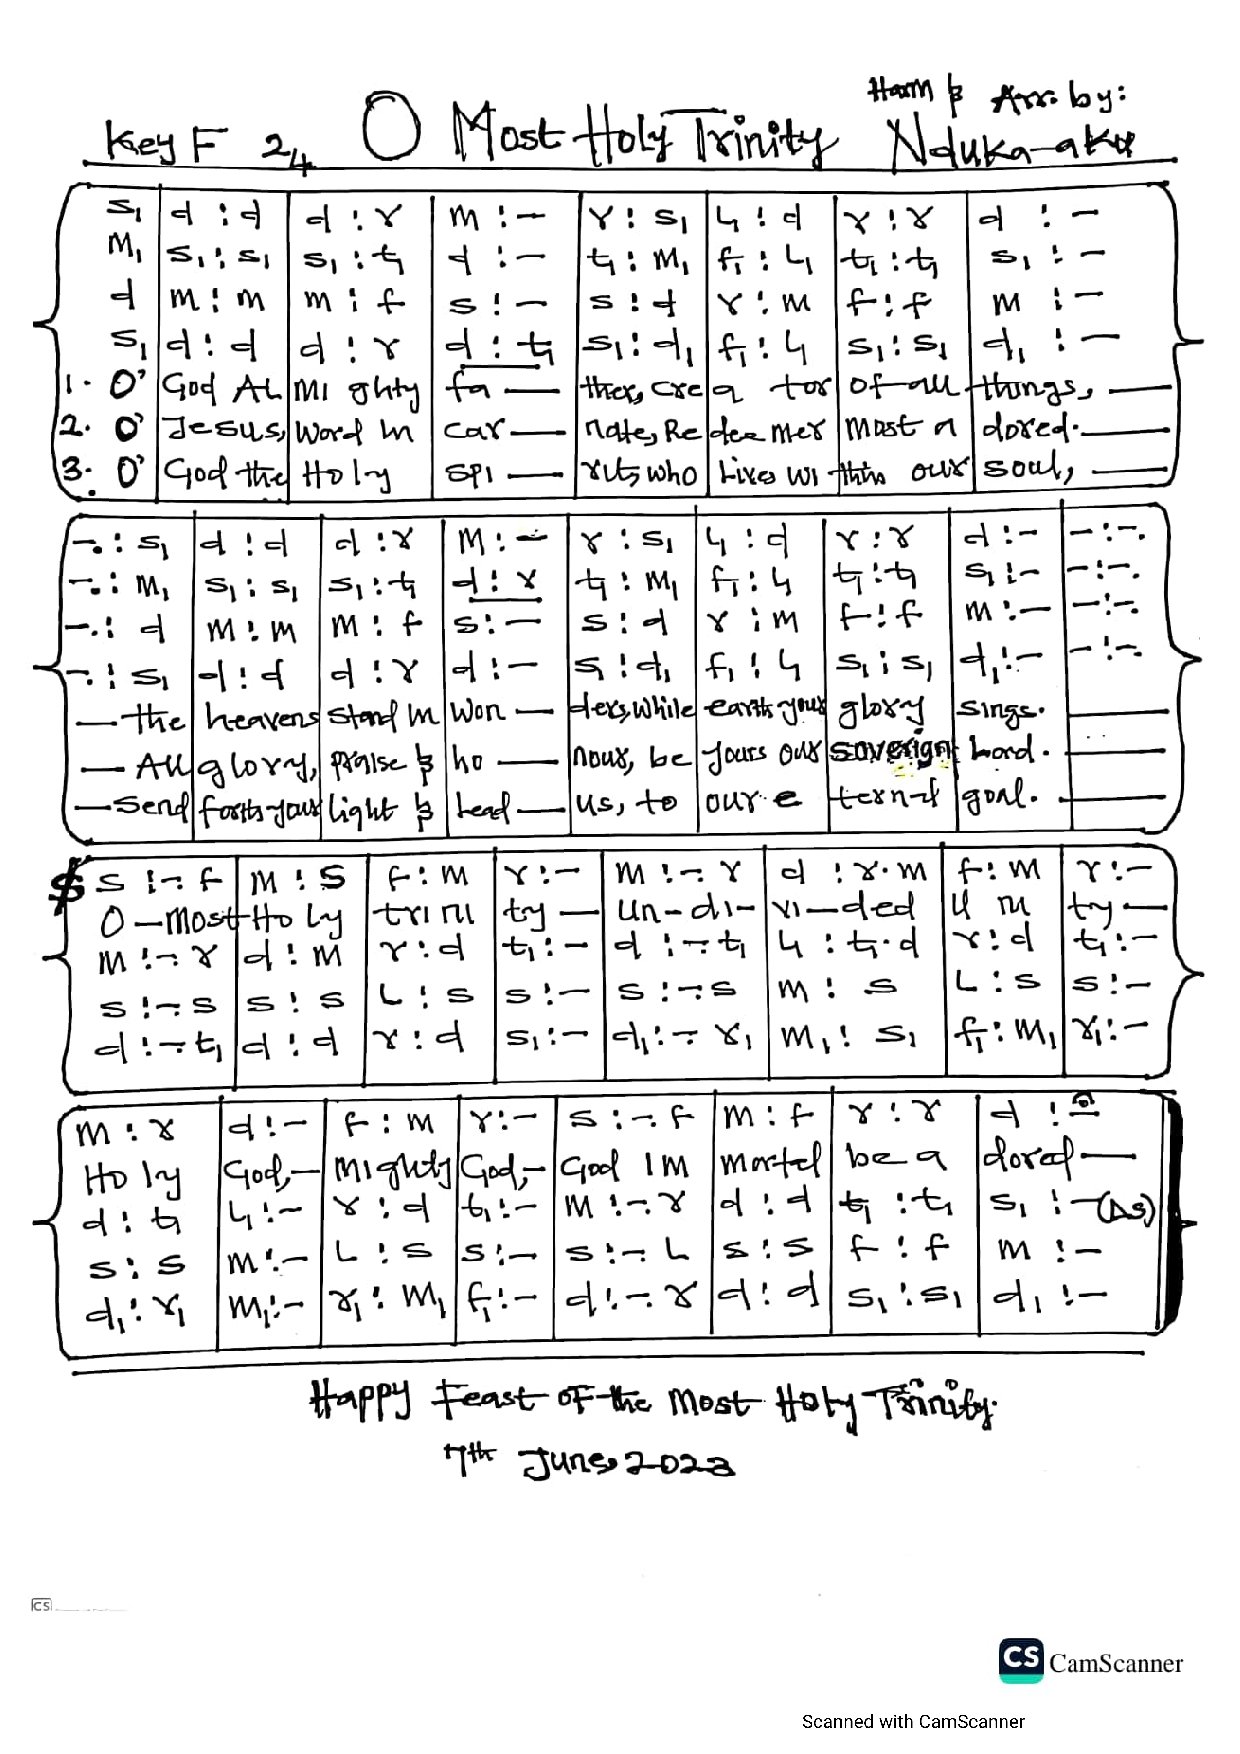 Harm & Arr. by:
Key F 2/4 O Most Holy Trinity Nduka-aku
s₁ | d : d | d : r | m : — | r : s₁ | l₁ : d | r : r | d : —
m₁ | s₁ : s₁ | s₁ : t₁ | d : — | t₁ : m₁ | f₁ : l₁ | t₁ : t₁ | s₁ : —
d | m : m | m : f | s : — | s : d | r : m | f : f | m : —
s₁ | d : d | d : r | d : t₁ | s₁ : d₁ | f₁ : l₁ | s₁ : s₁ | d₁ : —
1. O' God AL MI ghty fa — ther, cre a tor of all things, —
2. O' Jesus, Word In car — nate, Re dee mer most a dored. —
3. O' God the Holy spi — rit, who Lives wi thin our soul, —
—. : s₁ | d : d | d : r | m : — | r : s₁ | l₁ : d | r : r | d : — | — : —.
—. : m₁ | s₁ : s₁ | s₁ : t₁ | d : r | t₁ : m₁ | f₁ : l₁ | t₁ : t₁ | s₁ : — | — : —.
—. : d | m : m | m : f | s : — | s : d | r : m | f : f | m : — | — : —.
—. : s₁ | d : d | d : r | d : — | s : d₁ | f₁ : l₁ | s₁ : s₁ | d₁ : — | — : —.
— the heavens stand in won — ders, while earth your glory sings. —
— All glory, praise & ho — nour, be yours our soverign Lord. —
— Send forth your light & Lead — us, to our e ternal goal. —
$ s : — : f | m : s | f : m | r : — | m : — : r | d : r . m | f : m | r : —
O — most Holy trini ty — un-di- vi-ded u ni ty —
m : — : r | d : m | r : d | t₁ : — | d : — : t₁ | l₁ : t₁ . d | r : d | t₁ : —
s : — : s | s : s | L : s | s : — | s : — : s | m : s | L : s | s : —
d : — : t₁ | d : d | r : d | s₁ : — | d₁ : — : r₁ | m₁ : s₁ | f₁ : m₁ | r₁ : —
m : r | d : — | f : m | r : — | s : — : f | m : f | r : r | d : —
Ho ly God, — mighty God, — God IM mortal be a dored —
d : t₁ | l₁ : — | r : d | t₁ : — | m : — : r | d : d | t₁ : t₁ | s₁ : — (DS)
s : s | m : — | L : s | s : — | s : — : L | s : s | f : f | m : —
d₁ : r₁ | m₁ : — | r₁ : m₁ | f₁ : — | d : — : r | d : d | s₁ : s₁ | d₁ : —
Happy Feast of the Most Holy Trinity.
7th June, 2023
CS
CS CamScanner
Scanned with CamScanner